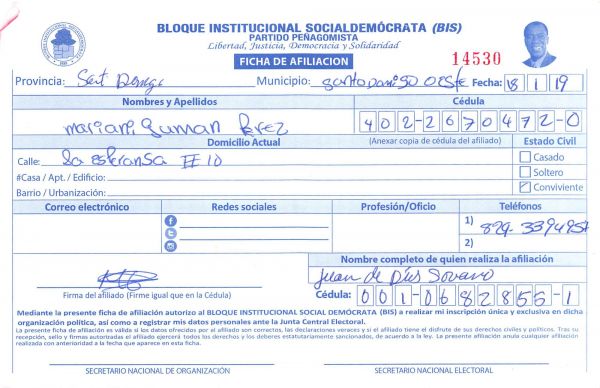 BLOQUE INSTITUCIONAL SOCIALDEMÓCRATA (BIS)
PARTIDO PEÑAGOMISTA
Libertad, Justicia, Democracia y Solidaridad
FICHA DE AFILIACION
14530
Provincia: Municipio: Santo Domingo Oeste Fecha: 18 1 19
Nombres y Apellidos Cédula
Mariani Guman Perez 402-2670472-0
Domicilio Actual (Anexar copia de cédula del afiliado) Estado Civil
Calle: La Esperansa #10 Casado
#Casa / Apt. / Edificio: Soltero
Barrio / Urbanización: Conviviente
Correo electrónico Redes sociales Profesión/Oficio Teléfonos
1) 829-3394954
2)
Nombre completo de quien realiza la afiliación
Juan de Dios
Firma del afiliado (Firme igual que en la Cédula) Cédula: 001-0682855-1
Mediante la presente ficha de afiliación autorizo al BLOQUE INSTITUCIONAL SOCIAL DEMÓCRATA (BIS) a realizar mi inscripción única y exclusiva en dicha
organización política, así como a registrar mis datos personales ante la Junta Central Electoral.
La presente ficha de afiliación es válida si los datos ofrecidos por el afiliado son correctos, las declaraciones veraces y si el afiliado tiene el disfrute de sus derechos civiles y políticos. Tras su
recepción, sello y firmas autorizadas el afiliado ejercerá todos los derechos y los deberes estatutariamente sancionados, de acuerdo a la ley. La presente afiliación anula cualquier afiliación
realizada con anterioridad a la fecha que aparece en esta ficha.
SECRETARIO NACIONAL DE ORGANIZACIÓN SECRETARIO NACIONAL ELECTORAL